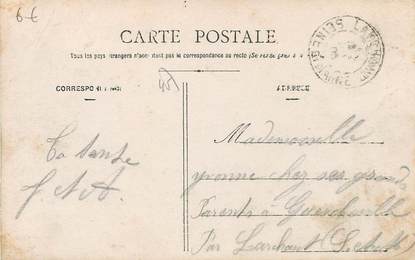 6€
CARTE POSTALE
Tous les pays étrangers n'acceptant pas la correspondance au recto (Se renseigner
CORRESPONDANCE
ADRESSE
Ta tante
Mademoiselle
yvonne chez ses grands
Parents à
Par Larchant S. et M
SEINE